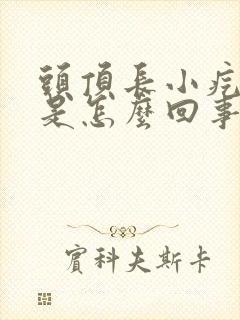 頭頂長小疙
是怎麼回事
賓科夫斯卡